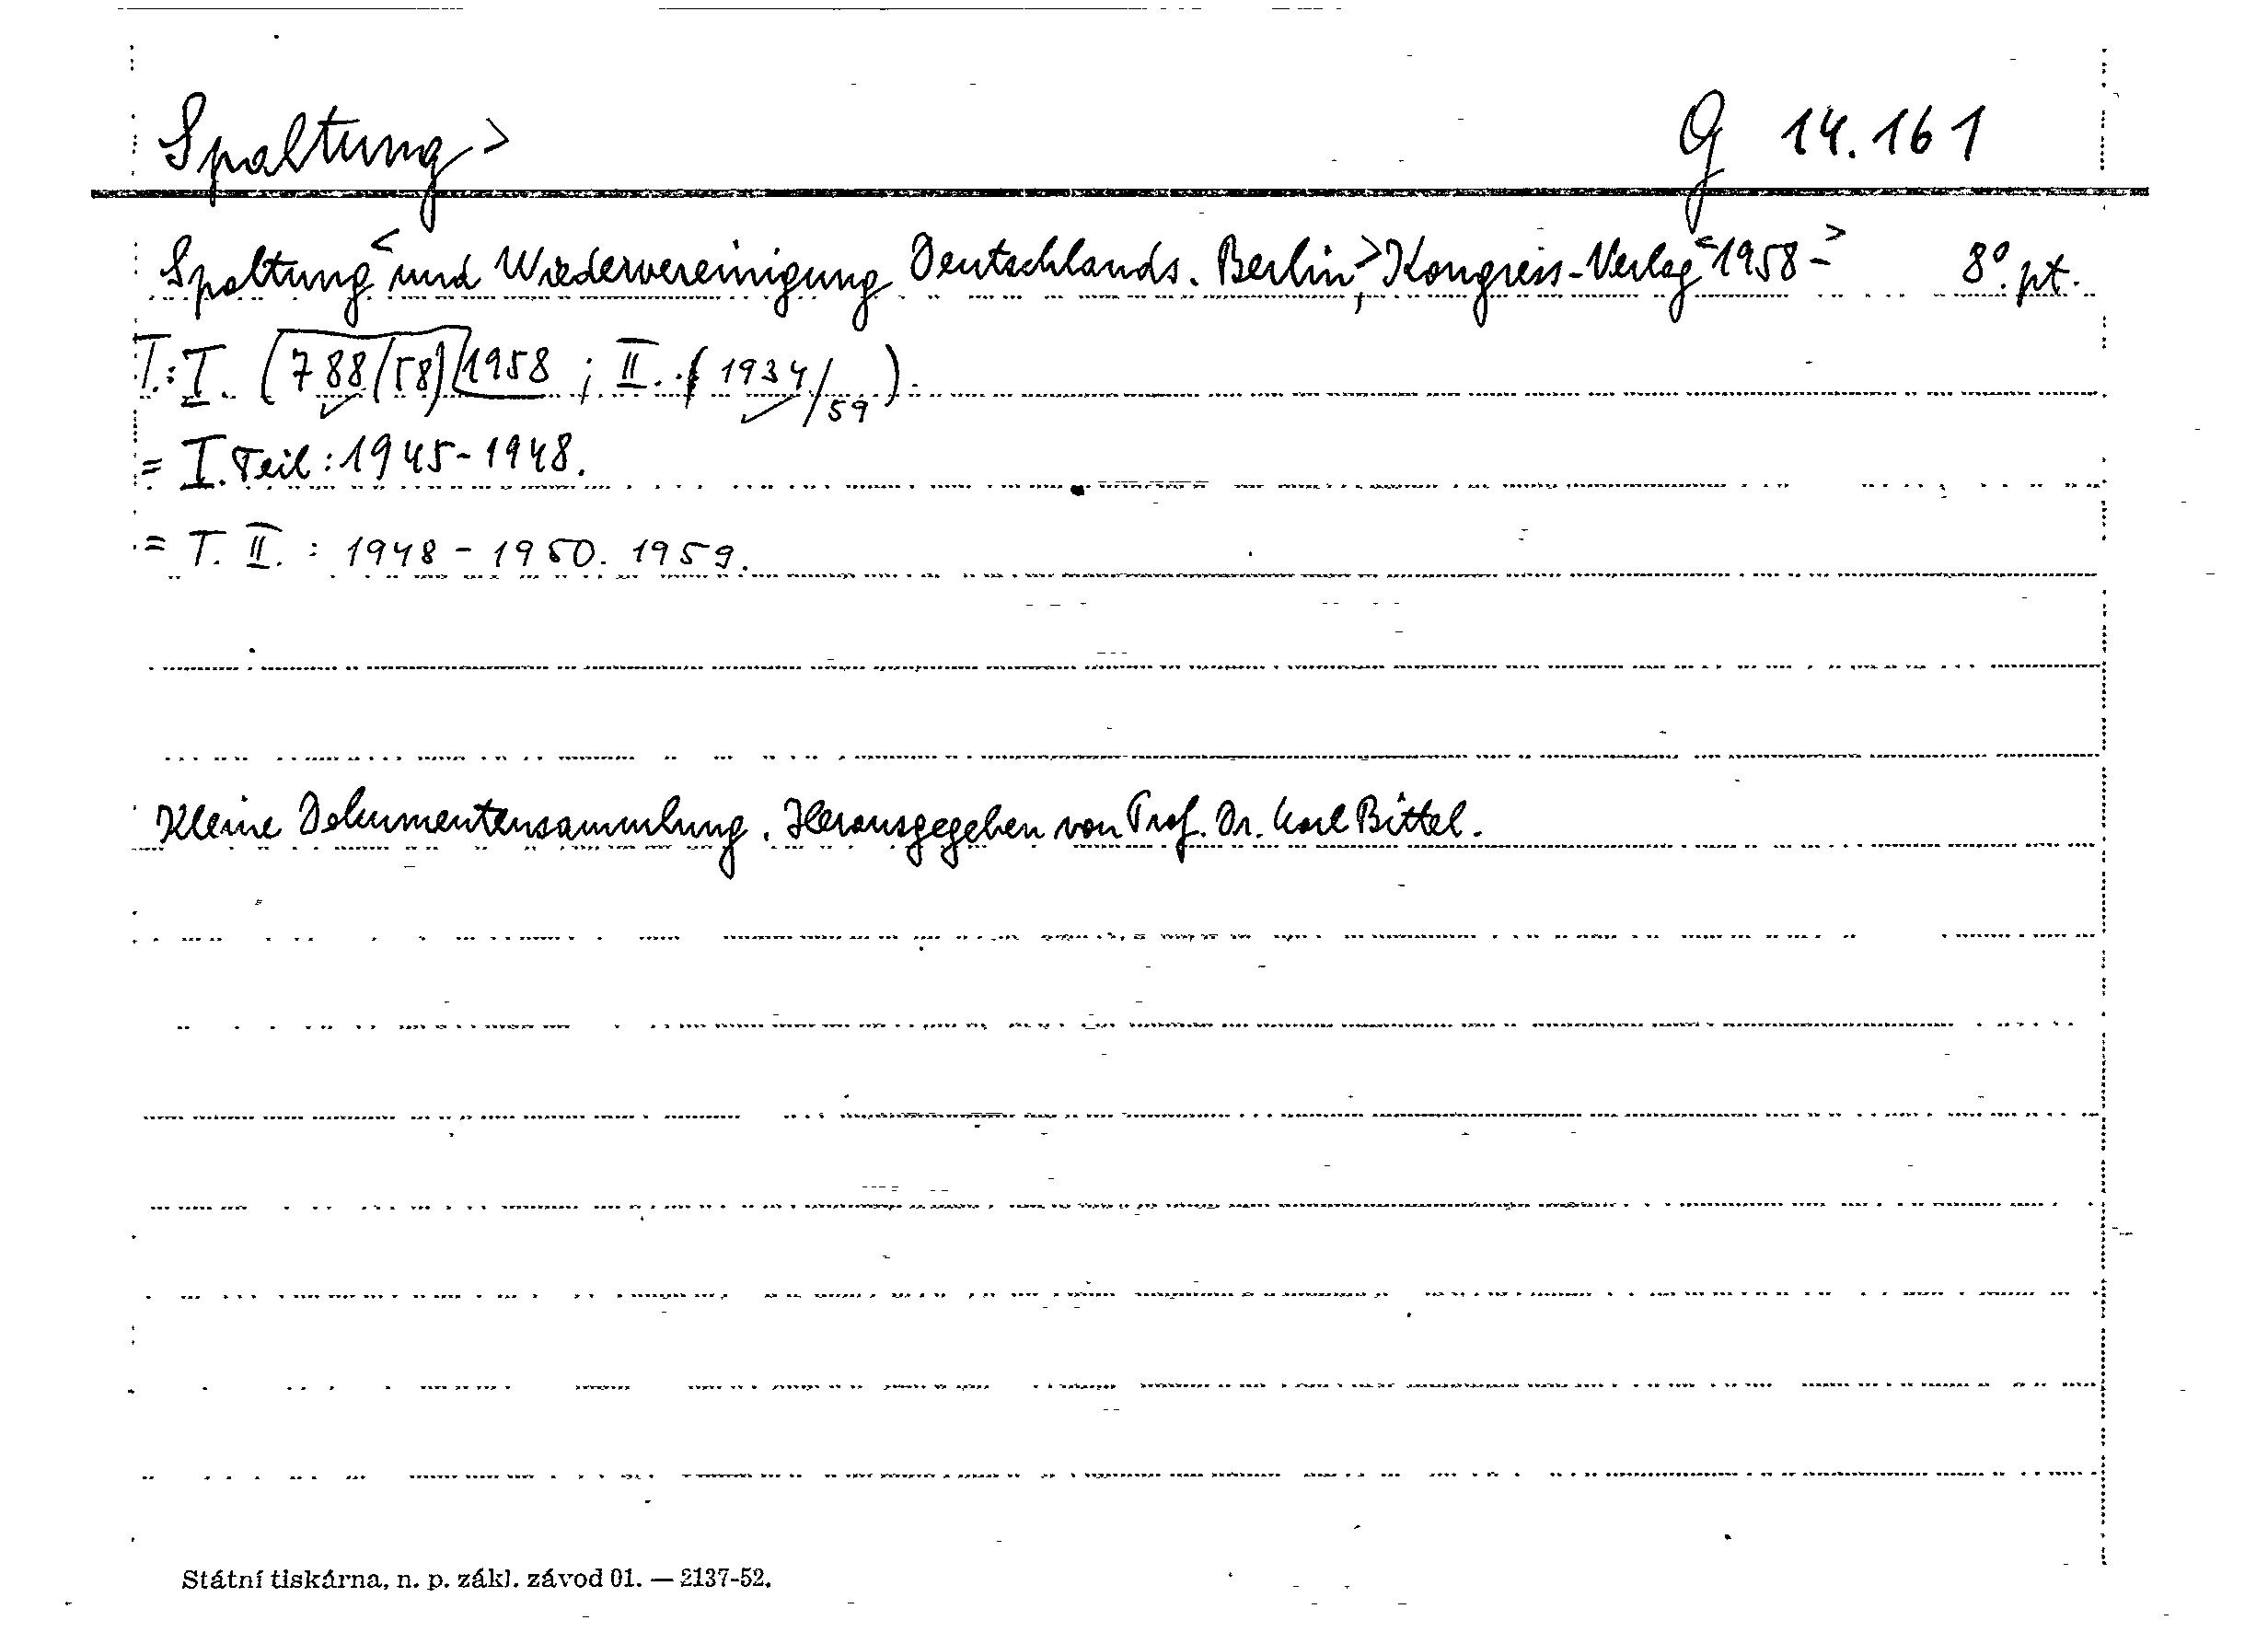 Spaltung > G 14.161
Spaltung < und Wiedervereinigung Deutschlands. Berlin, > Kongress-Verlag < 1958 - > 8°. pt.
T.: I. (788/58) 1958 ; II. (1934/59).
= I. Teil: 1945-1948.
= T. II. : 1948 - 1950. 1959.
Kleine Dokumentensammlung. Herausgegeben von Prof. Dr. Karl Bittel.
Státní tiskárna, n. p. zákl. závod 01. — 2137-52.